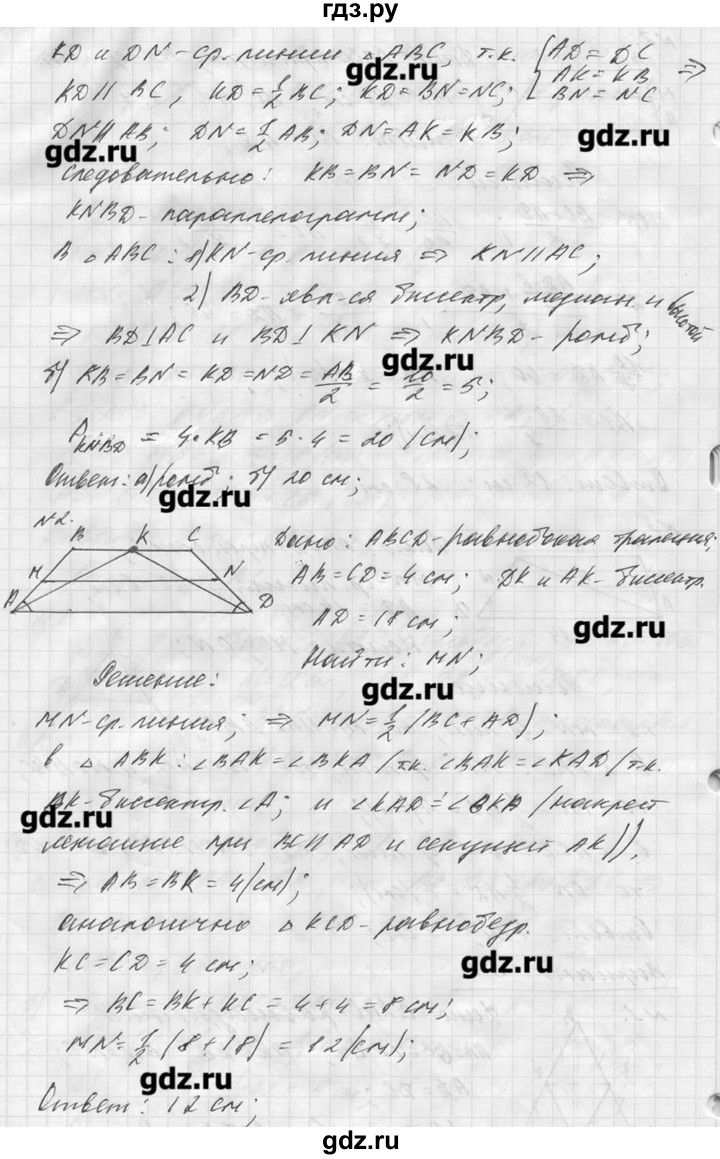 гдз.ру
KD и DN - ср. линии △ ABC, т.к. { AD = DC
AK = KB ⇒
KD || BC, KD = 1/2 BC; KD = BN = NC; BN = NC
gdz.ru
DN || AB; DN = 1/2 AB; DN = AK = KB;
gdz.ru
gdz.ru
следовательно: KB = BN = ND = KD ⇒
KNBD - параллелограмм;
В △ ABC: 1) KN - ср. линия ⇒ KN || AC;
2) BD - явл-ся биссектр, медиан. и высотой
⇒ BD ⊥ AC и BD ⊥ KN ⇒ KNBD - ромб;
gdz.ru
б) KB = BN = KD = ND = AB/2 = 10/2 = 5;
P KNBD = 4 · KB = 5 · 4 = 20 (см);
Ответ: а) ромб; б) 20 см;
gdz.ru
№2.
B K C
M N
A D
Дано: ABCD - равнобокая трапеция;
AB = CD = 4 см; DK и AK - биссектр.
AD = 18 см;
gdz.ru
Найти: MN;
Решение:
gdz.ru
MN - ср. линия; ⇒ MN = 1/2 (BC + AD);
в △ ABK: ∠BAK = ∠BKA (т.к. ∠BAK = ∠KAD (т.к.
AK - биссектр. ∠A; и ∠KAD = ∠BKA (накрест
gdz.ru
лежащие при BC || AD и секущей AK)),
⇒ AB = BK = 4 (см);
аналогично △ KCD - равнобедр.
KC = CD = 4 см;
gdz.ru
⇒ BC = BK + KC = 4 + 4 = 8 см;
MN = 1/2 (8 + 18) = 12 (см);
gdz.ru
Ответ: 12 см;
gdz.ru